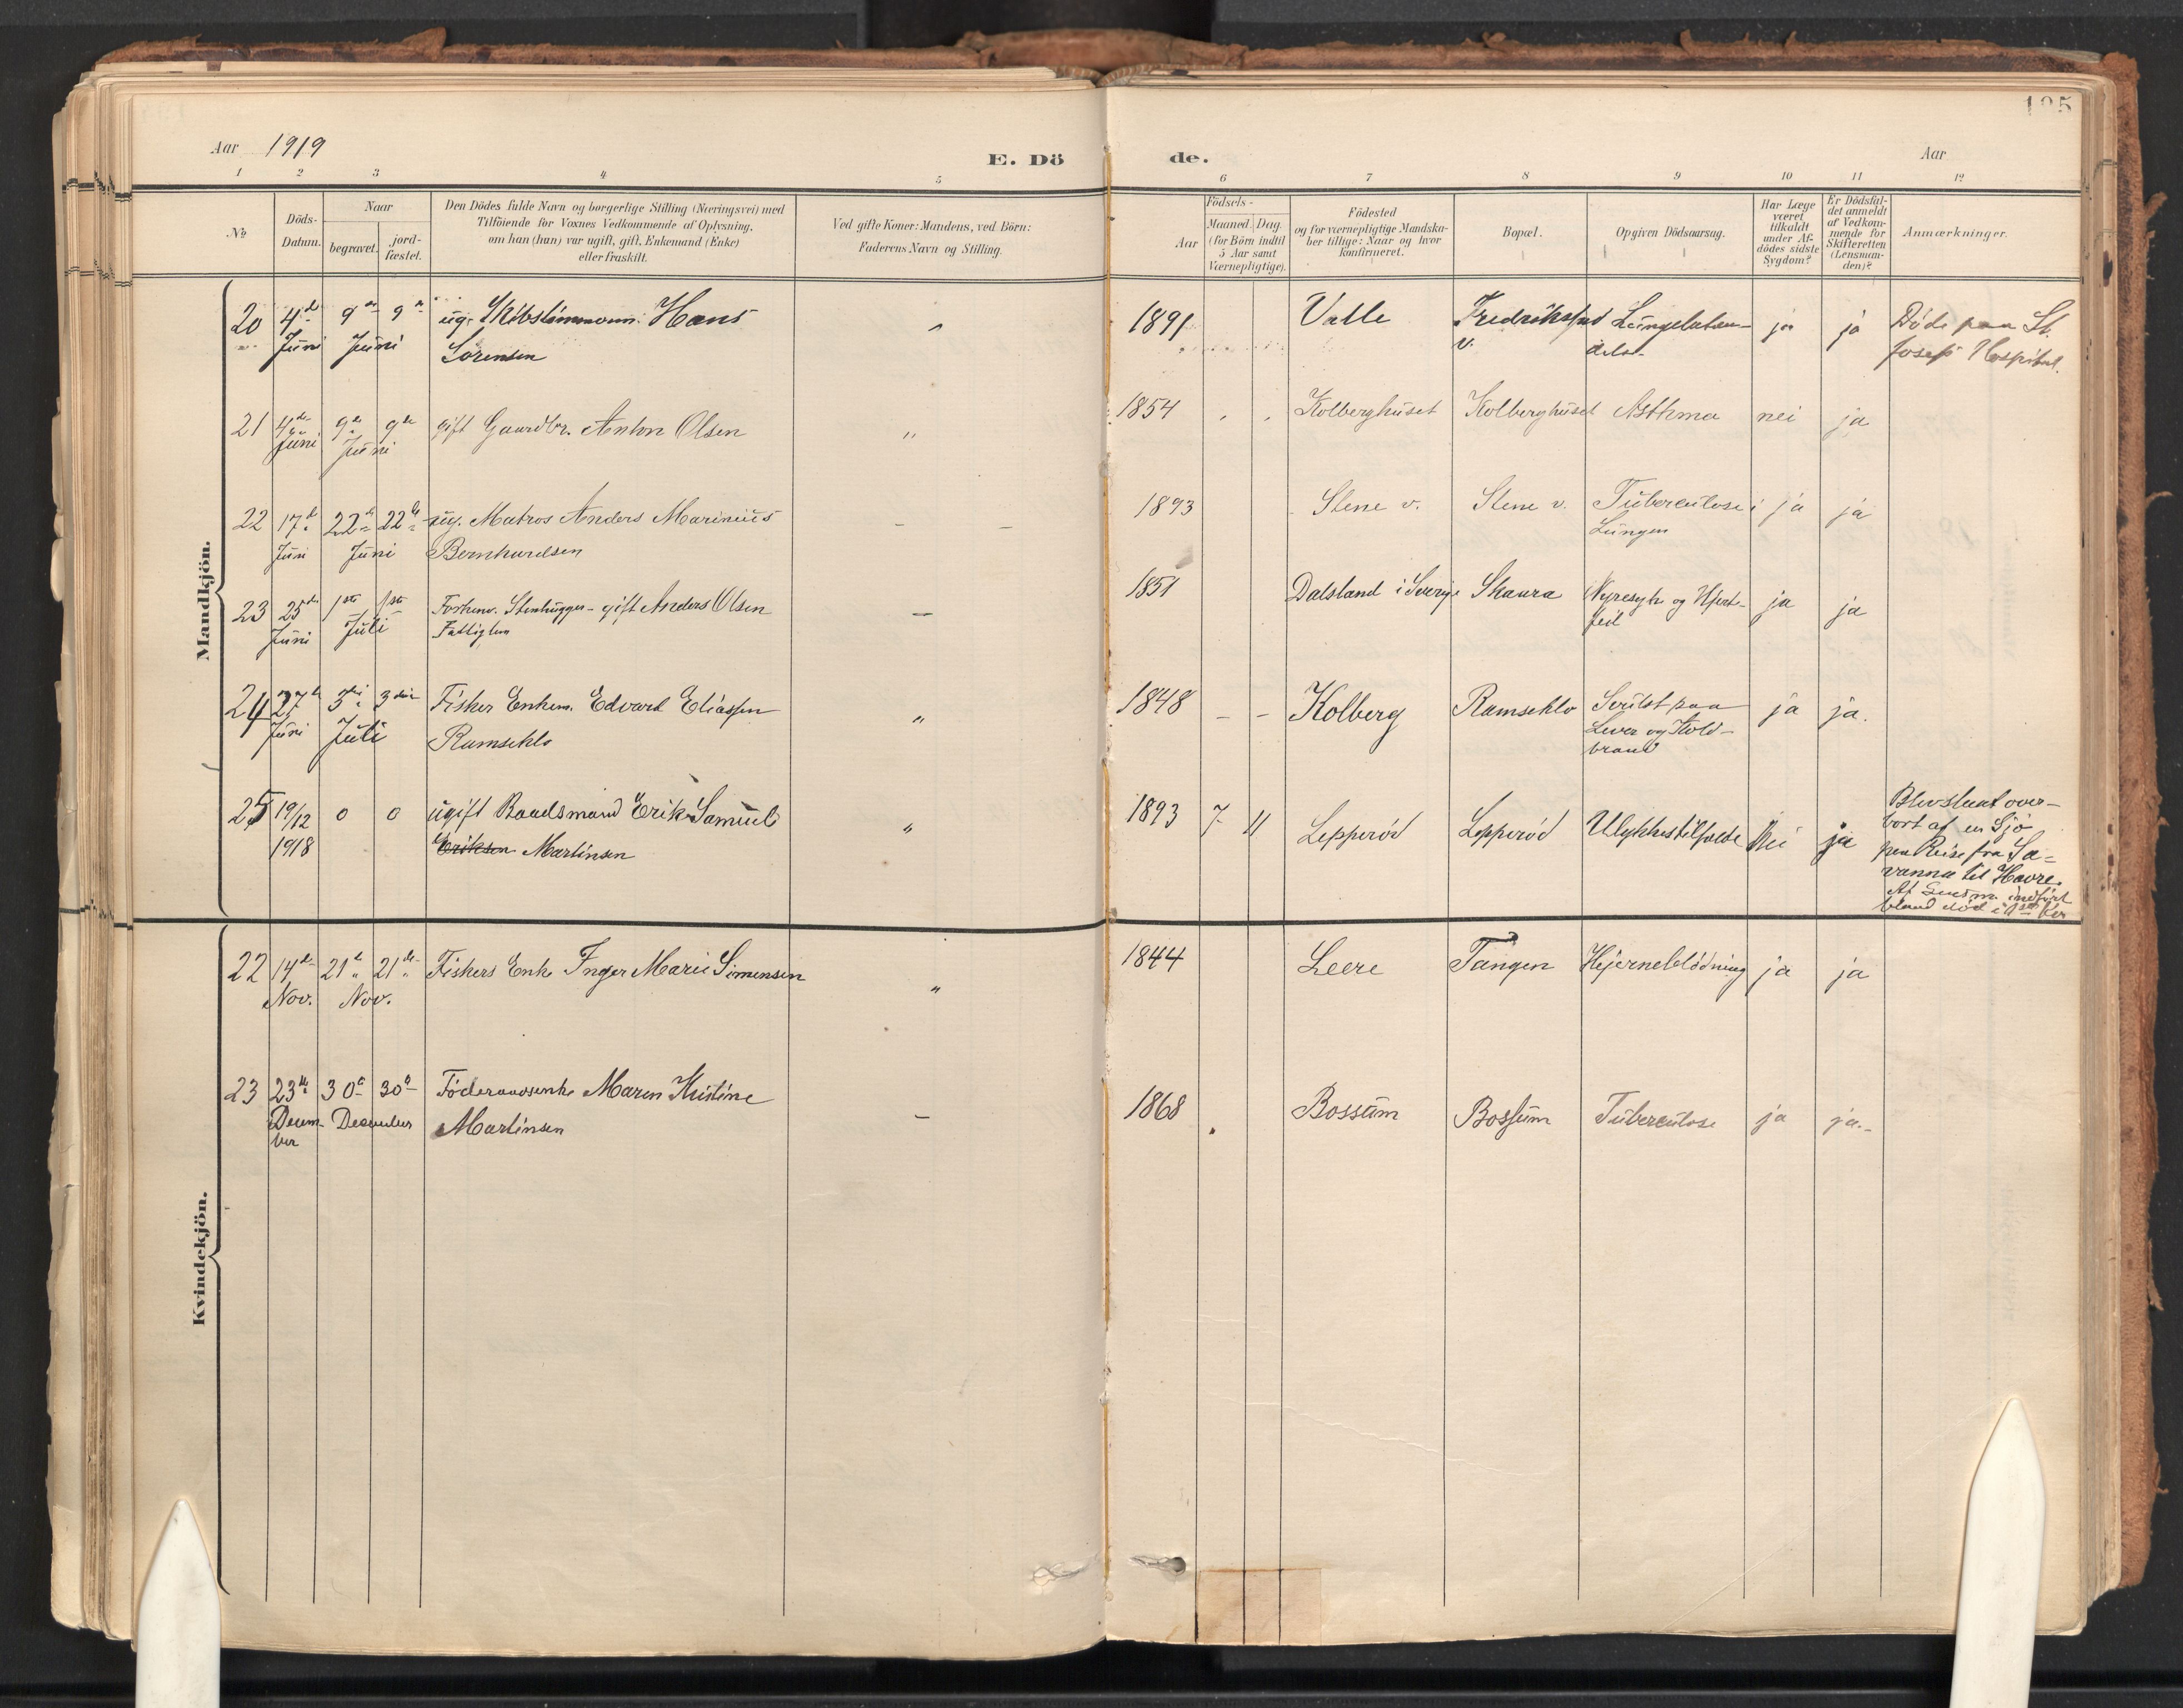 195
Aar 1919
E. Dö
de.
Aar
1 2 3 4 5 6 7 8 9 10 11 12
No.
Döds-
Datum.
Naar
begravet.
jord-
fæstet.
Den Dödes fulde Navn og borgerlige Stilling (Næringsvei) med
Tilföiende for Voxnes Vedkommende af Oplysning,
om han (hun) var ugift, gift, Enkemand (Enke)
eller fraskilt.
Ved gifte Koner: Mandens, ved Börn:
Faderens Navn og Stilling.
Födsels-
Aar
Maaned. Dag.
(for Börn indtil
5 Aar samt
Værnepligtige).
Födested
og for værnepligtige Mandska-
ber tillige: Naar og hvor
konfirmeret.
Bopæl.
Opgiven Dödsaarsag.
Har Læge
været
tilkaldt
under Af-
dødes sidste
Sygdom?
Er Dödsfal-
det anmeldt
af Vedkom-
mende for
Skifteretten
(Lensman-
den)?
Anmærkninger.
Mandkjön.
20 4de 9de 9de ug. Skibstömmerm. Hans 1891 Valle Fredrikstad Lungebetæn- ja ja Döde paa St.
Juni Juni Sörensen v. delse. Josefs Hospital.
21 4de 9de 9de gift Gaardbr. Anton Olsen " 1854 Kolberghuset Kolberghuset Asthma nei ja
Juni Juni
22 17de 22de 22de ug. Matros Anders Marinius - - 1893 Stene v. Stene v. Tuberculose i ja ja
Juni Juni Bernhardsen Lungen
23 25de 1ste 1ste Forhenv. Stenhugger - gift Anders Olsen - 1851 Dalsland i Sverige Skaara Nyresyke og Hjerte- ja ja
Juni Juli Fattiglem feil
24 27de 3die 3die Fisker Enkem. Edvard Eliassen " 1848 - - Kolberg Ramseklo Svulst paa ja ja.
Juni Juli Ramseklo Lever og Kold-
brand
25 19/12 0 0 ugift Baadsmand Erik Samuel " 1893 7 11 Lepperöd Lepperöd Ulykkestilfælde Nei ja Blev skuet over-
1918 Eriksen Martinsen bort af en Sjö
paa Reise fra Sa-
vanna til Havre.
Af Lensm. indfört
bland död i 1ste
Kvindekjön.
22 14de 21de 21de Fiskers Enke Inger Marie Simensen " 1844 Leere Tangen Hjerneblödning ja ja
Nov. Nov.
23 23de 30te 30te Föderaadsenke Maren Kristine - 1868 Bossum Bossum Tuberculose ja ja.-
Decem- December Martinsen
ber